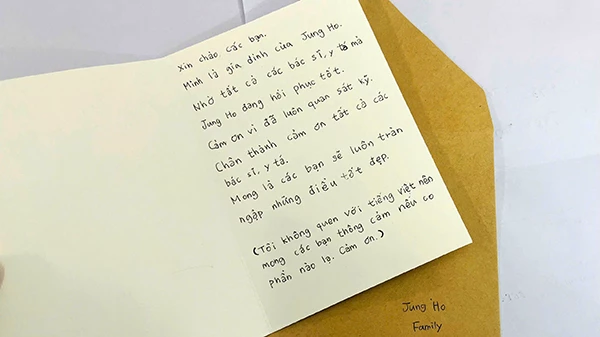 Xin chào, các bạn.
Mình là gia dình của Jung Ho.
Nhờ tất cả các bác sĩ, y tá mà
Jung Ho đang hồi phục tốt.
Cảm ơn vì đã luôn quan sát kỹ.
Chân thành cảm ơn tất cả các
bác sĩ, y tá.
Mong là các bạn sẽ luôn tràn
ngập những điều tốt đẹp.
(Tôi không quen với tiếng việt nên
mong các bạn thông cảm nếu có
phần nào lạ. Cảm ơn.)
Jung Ho
Family